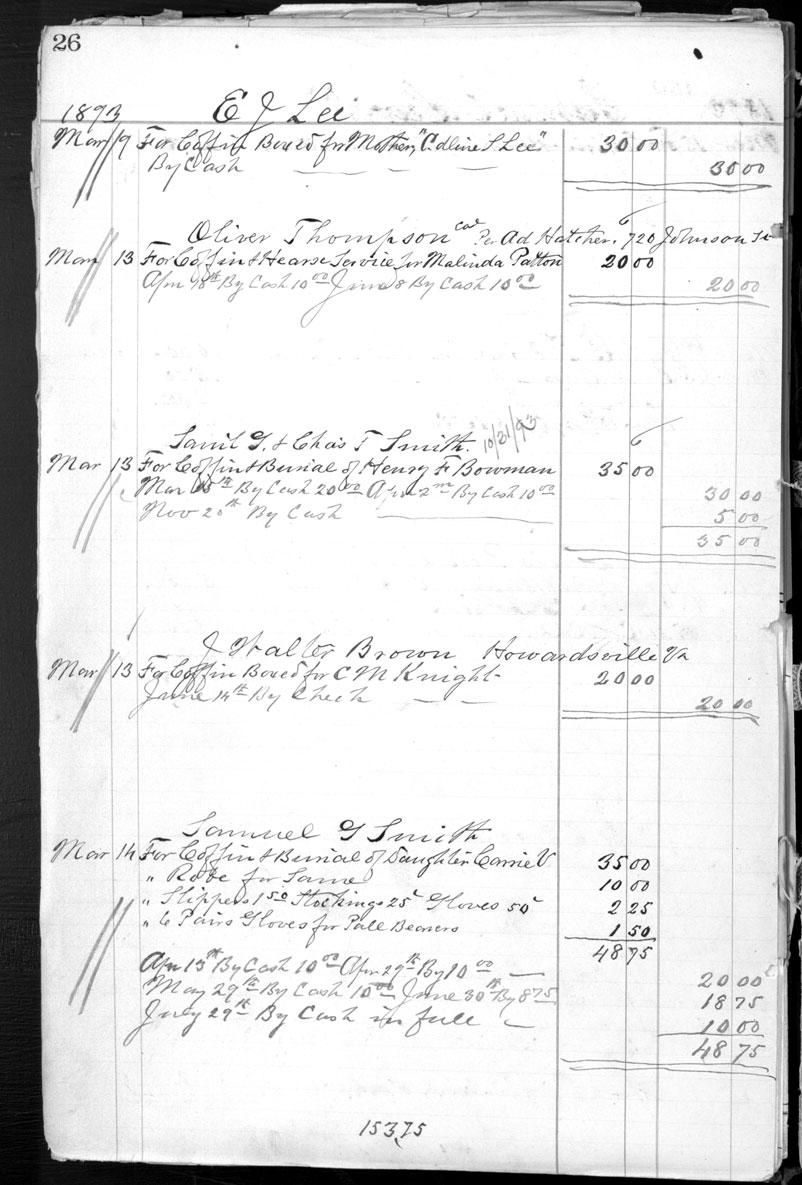 26
1893 E J Lee
Mar 9 For Coffin Boxed for Mother, "C.dline S Lee" 30 00
By Cash 30 00
Oliver Thompson Col Per Ad Hatcher. 720 Johnson St
Mar 13 For Coffin & Hearse Service for Malinda Patton 20 00
Apr 18th By Cash 10 00 June 8 By Cash 10 00 20 00
Saml G. & Chas T Smith. 10/21/93
Mar 13 For Coffin & Burial of Henry F Bowman 35 00
Mar By Cash 20 00 Apr 2nd By Cash 10 00 30 00
Nov 20th By Cash 5 00
35 00
J Walter Brown Howardsville Va
Mar 13 For Coffin Boxed for C M Knight 20 00
June 14th By Check 20 00
Samuel G Smith
Mar 14 For Coffin & Burial of Daughter Carrie V 35 00
" Robe for Same 10 00
" Slippers 1 50 Stockings 25c Gloves 50c 2 25
" 6 Pairs Gloves for Pall Bearers 1 50
48 75
Apr 13th By Cash 10 00 Apr 29th By 10 00 20 00
May 29th By Cash 10 00 June 30th By 8 75 18 75
July 29th By Cash in full 10 00
48 75
153,75